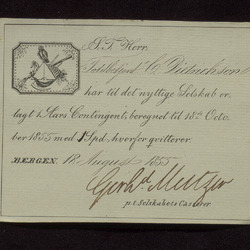 S. T. Herr
Toldbetjent C. Didrichsen
har til det nyttige Selskab er-
lagt 1 Aars Contingent, beregnet til 18de Octo-
ber 1855 med 1 Spd., hvorfor qvitteres.
BERGEN, 18 August 1855.
Gerhd. Meltzer
p. t. Selskabets Casserer